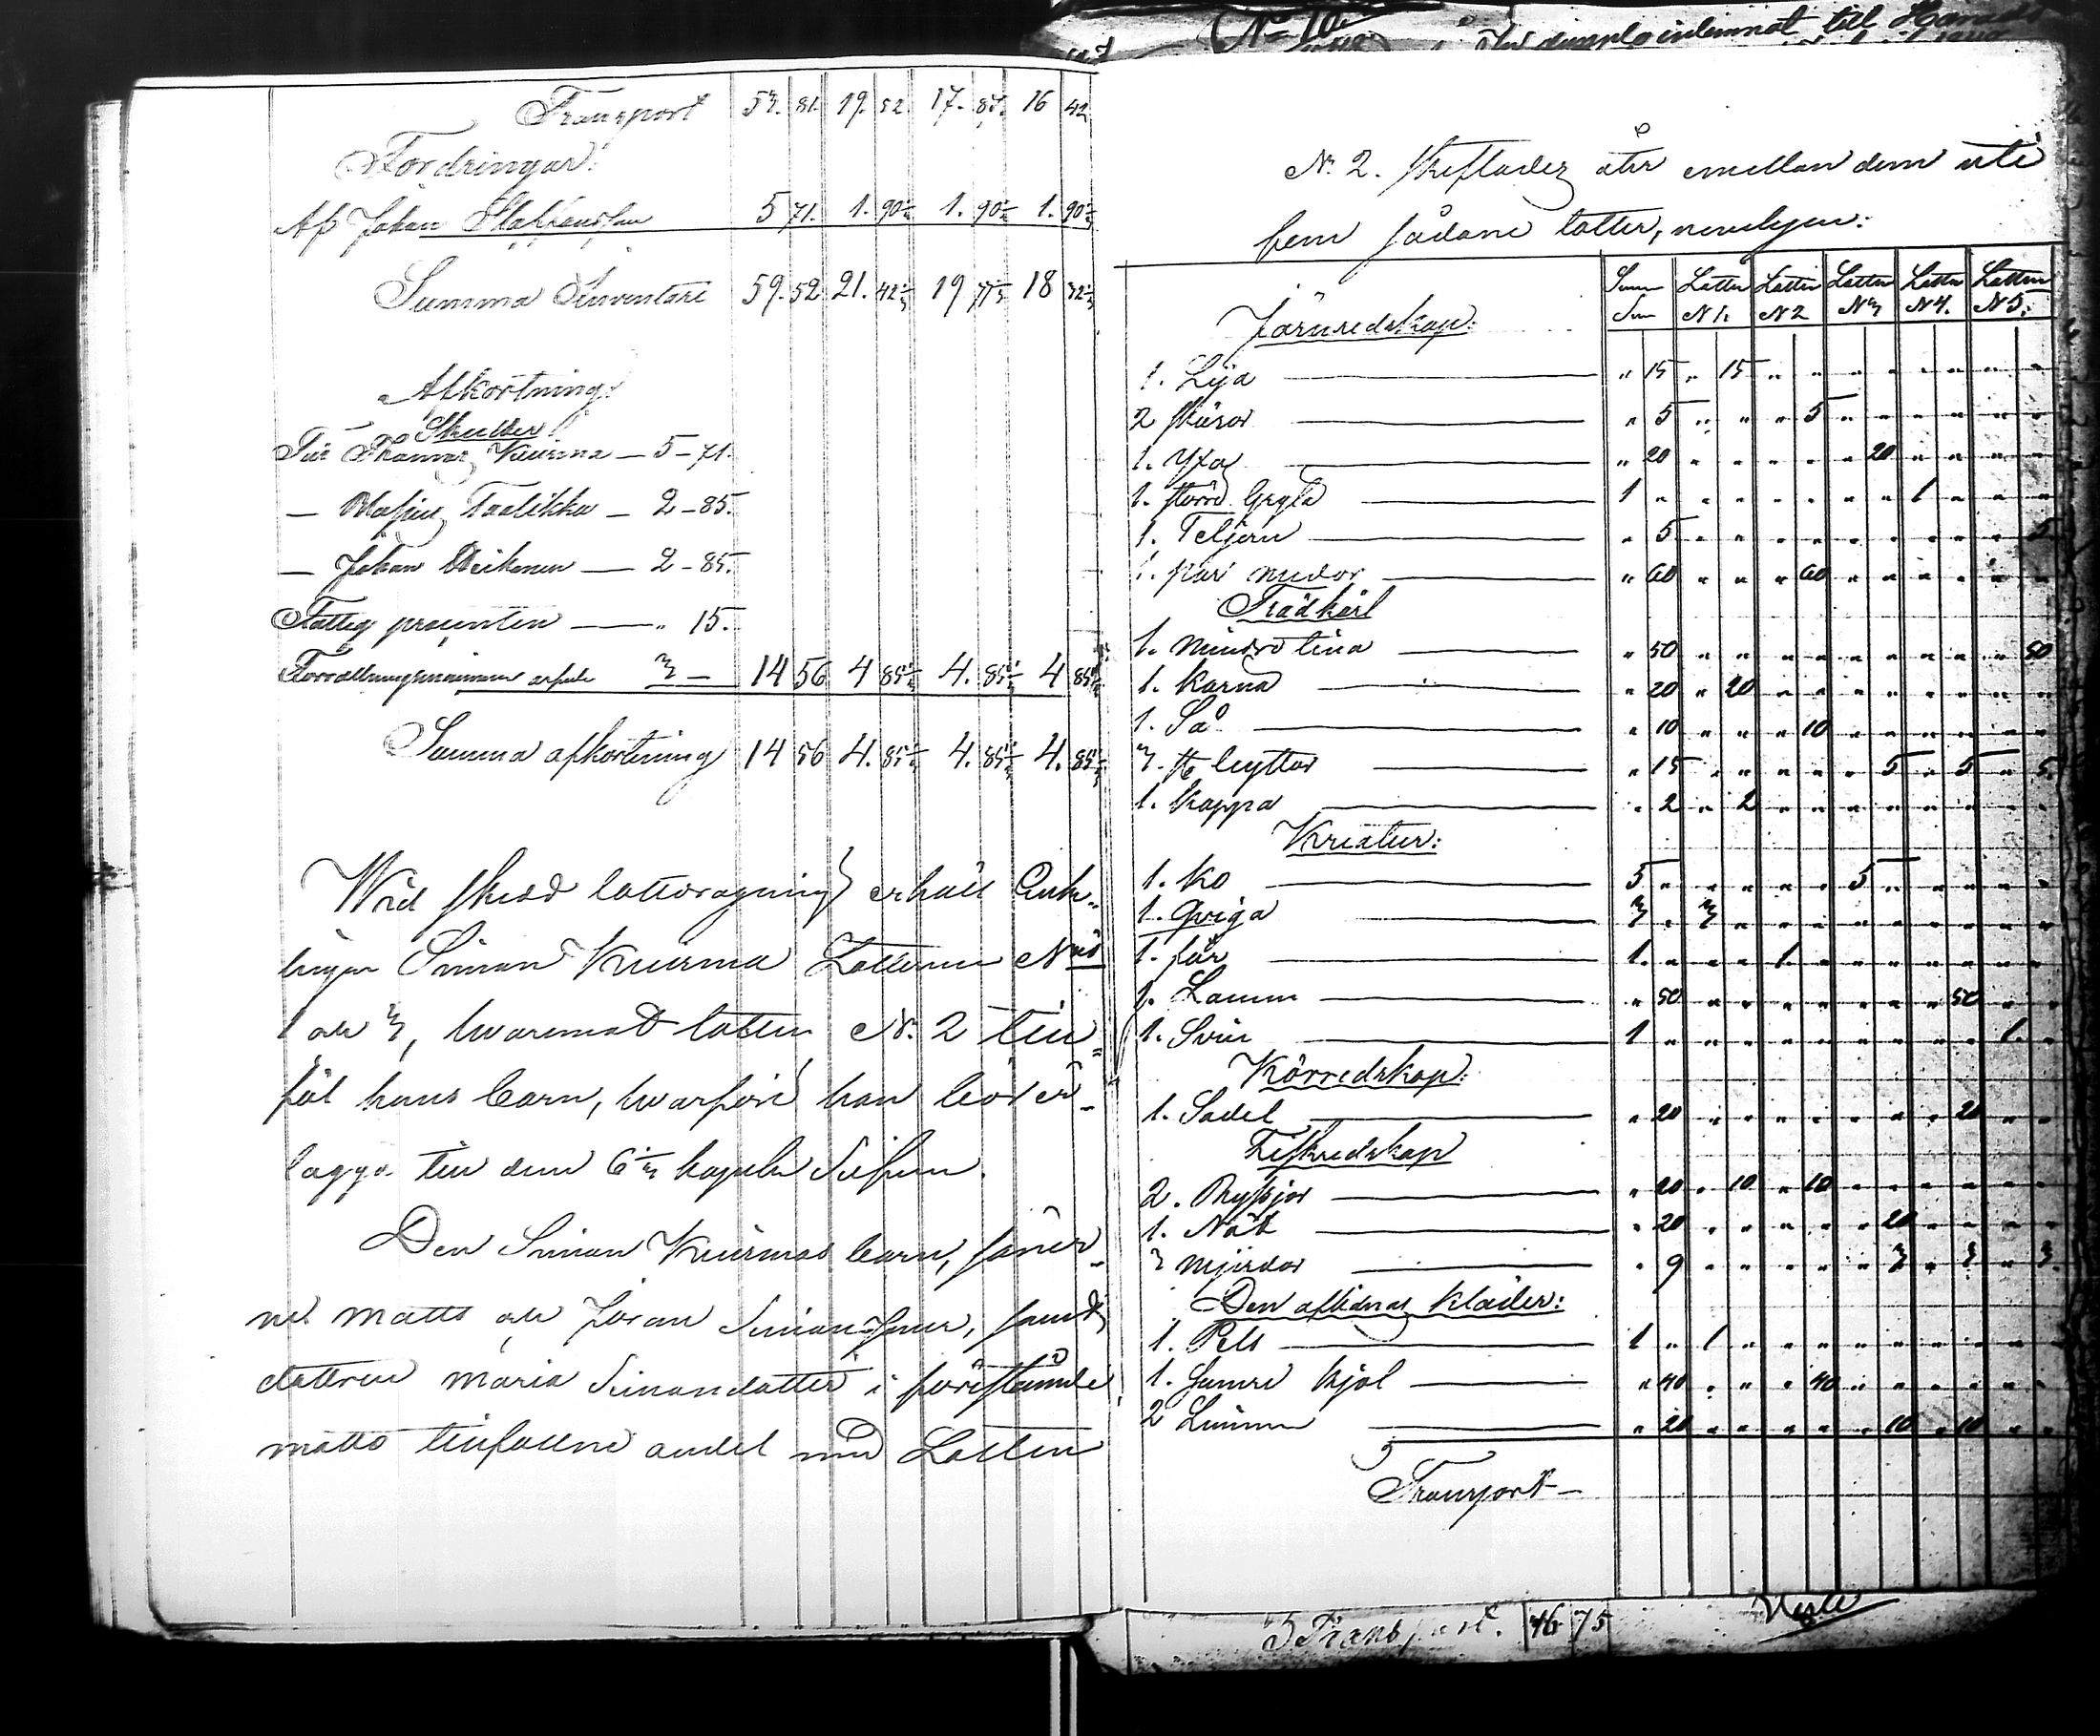 Transport 53. 81. 19. 52. 17. 87. 16 42
Fordringar:
Af Johan Staffansson 5 71. 1. 90⅓ 1. 90⅓ 1. 90⅓
Summa Inventarie 59. 52 21. 42⅓ 19 77⅓ 18 32⅓
Afkortning:
Skulder
Till Thomas Kuisma — 5 – 71.
— Mathias Taalikka — 2 – 85.
— Johan Heikonen — 2 – 85.
Fattig procenten — " 15.
3 — 14 56 4 85⅓ 4. 85⅓ 4 85⅓
Summa afkortning 14 56 4. 85⅓ 4. 85⅓ 4. 85⅓
Wid skedd lottdragning erhöll Enk-
lingen Simon Kuisma Lotterne N:ris
1 och 3, hwaremot lotten N: 2 till-
föll hans barn, hwarföre han bör er-
lägga till dem 6⅓ kopek Silfwer.
Den Simon Kuismas barn, söner-
ne Matts och Jöran Simonssöner, samt
dottren Maria Simonsdotter i förestående
måtto tillfallne andel med Lotten
N: 2. skiftades åter emellan dem uti
fem sådane lotter, nemligen:
Summa Lotten Lotten Lotten Lotten Lotten
N 1. N 2 N 3 N 4. N 5.
Järnredskap:
1. Lija — " 15 " 15 " " " " " " " "
2 skäror — " 5 " " " 5 " " " " " "
1. Yxa — " 20 " " " " " 20 " " " "
1. större Gryta — 1 " " " " " " " 1 " " "
1. Teljern — " 5 " " " " " " " " " 5
1. par medor — " 60 " " " 60 " " " " " "
Trädkäril
1. mindre tina — " 50 " " " " " " " " " 50
1. Kärna — " 20 " 20 " " " " " " " "
1. Så — " 10 " " " 10 " " " " " "
3. st byttor — " 15 " " " " " 5 " 5 " 5
1. Kappa — " 2 " 2 " " " " " " " "
Kreatur:
1. Ko — 5 " " " " " 5 " " " " "
1. Qviga — 3 " 3 " " " " " " " " "
1. får — 1. " " " 1. " " " " " " "
1. Lamm — " 50 " " " " " " " 50 " "
1. Svin — 1 " " " " " " " " " 1. "
Körredskap:
1. Sadel — " 20 " " " " " " " 20 " "
Fiskredskap
2. Ryssjor — " 20 " 10 " 10 " " " " " "
1. Nät — " 20 " " " " " 20 " " " "
3 mjerdor — " 9 " " " " " 3 " 3 " 3
Den aflednas kläder:
1. Pels — 1 " 1 " " " " " " " " "
1. Kjol — " 40 " " " 40 " " " " " "
2 — " 20 " " " " " 10 " 10 " "
Transport —
Transport. 46 75